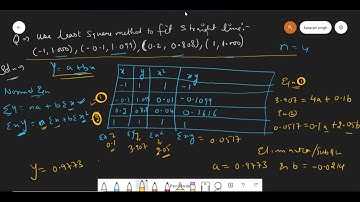 Q → Use least square method to fit straight line:-
(-1, 1.000), (-0.1, 1.099), (0.2, 0.808), (1, 1.000)
n = 4
Solⁿ → y = a + bx
Normal Eqⁿ
Σy = na + bΣx → ①
Σxy = aΣx + bΣx² ②
x y x² xy
-1 1 1 -1
-0.1 1.099 0.01 -0.1099
0.2 0.808 0.04 0.1616
1 1 1 1
Σx = 0.1 Σy = 3.907 Σx² = 2.05 Σxy = 0.0517
Eq ①
3.907 = 4a + 0.1b
Eq ②
0.0517 = 0.1a + 2.05b
a = 0.9773 b = -0.0214
y = 0.9773